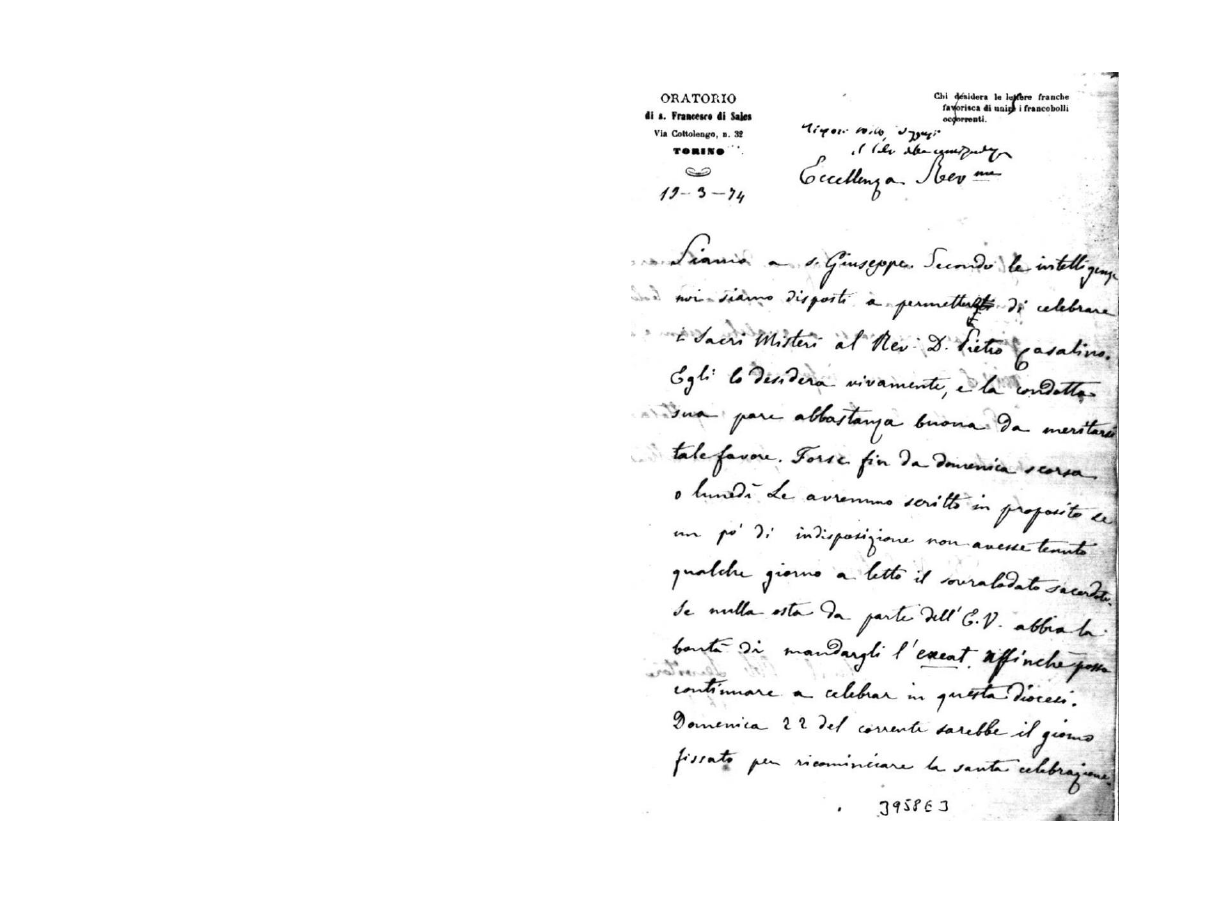 ORATORIO
di s. Francesco di Sales
Via Cottolengo, n. 32
TORINO
19-3-74
Chi desidera le lettere franche
favorisca di unire i francobolli
occorrenti.
Eccellenza Rev me
Siamo a s. Giuseppe. Secondo le intelligenze
noi siamo disposti a permettere di celebrare
i Sacri Misteri al Rev. D. Pietro Casalino.
Egli lo desidera vivamente, e la condotta
sua pare abbastanza buona da meritarsi
tale favore. Forse fin da domenica scorsa
o lunedì Le avremmo scritto in proposito se
un po' di indisposizione non avesse tenuto
qualche giorno a letto il sovralodato sacerdote.
Se nulla osta da parte dell'E.V. abbia la
bontà di mandargli l'exeat affinchè possa
continuare a celebrar in questa diocesi.
Domenica 22 del corrente sarebbe il giorno
fissato per ricominciare la santa celebrazione.
3958E3